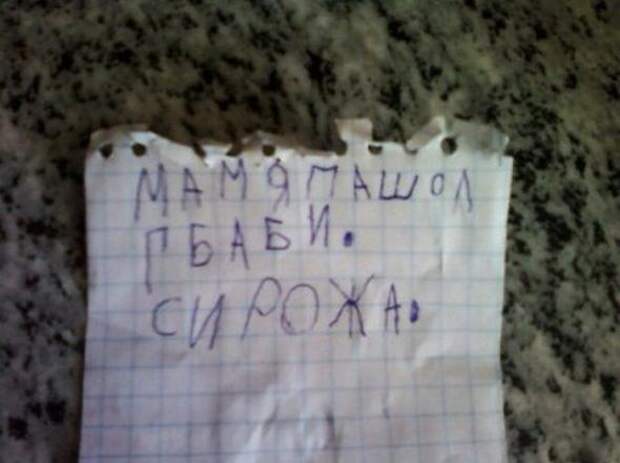 МАМ Я ПАШОЛ
ГБАБИ.
СИРОЖА.